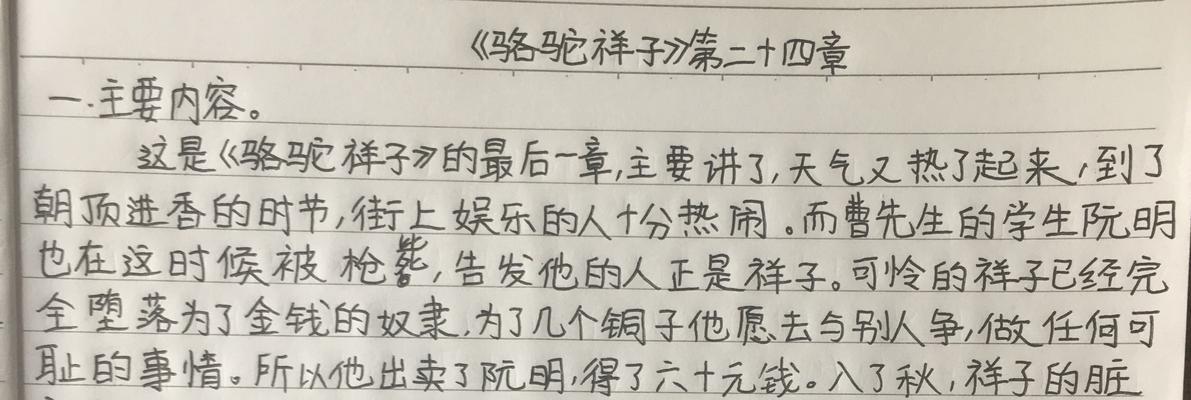 《骆驼祥子》第二十四章
一.主要内容。
这是《骆驼祥子》的最后一章,主要讲了,天气又热了起来,到了
朝顶进香的时节,街上娱乐的人十分热闹。而曹先生的学生阮明
也在这时候被枪毙,告发他的人正是祥子。可怜的祥子已经完
全堕落为了金钱的奴隶,为了几个铜子他愿去与别人争,做任何可
耻的事情。所以他出卖了阮明,得了六十元钱。入了秋,祥子的脏